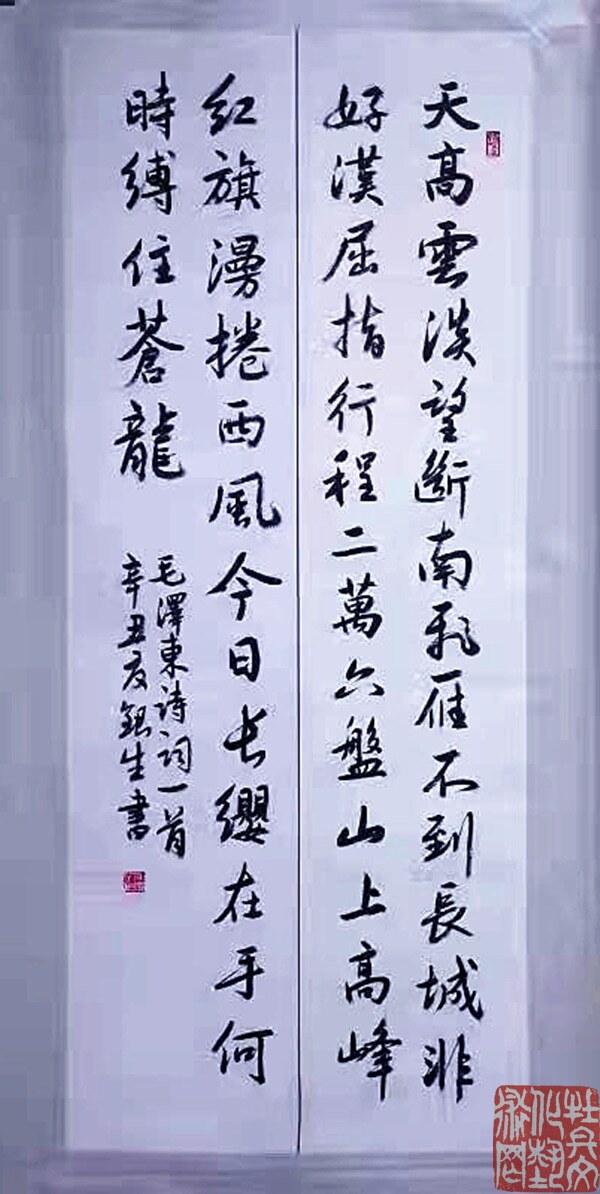 天高雲淡望斷南飛雁不到長城非
好漢屈指行程二萬六盤山上高峰
紅旗漫捲西風今日长纓在手何
時縛住蒼龍
毛澤東诗词一首
辛丑夏銀生書